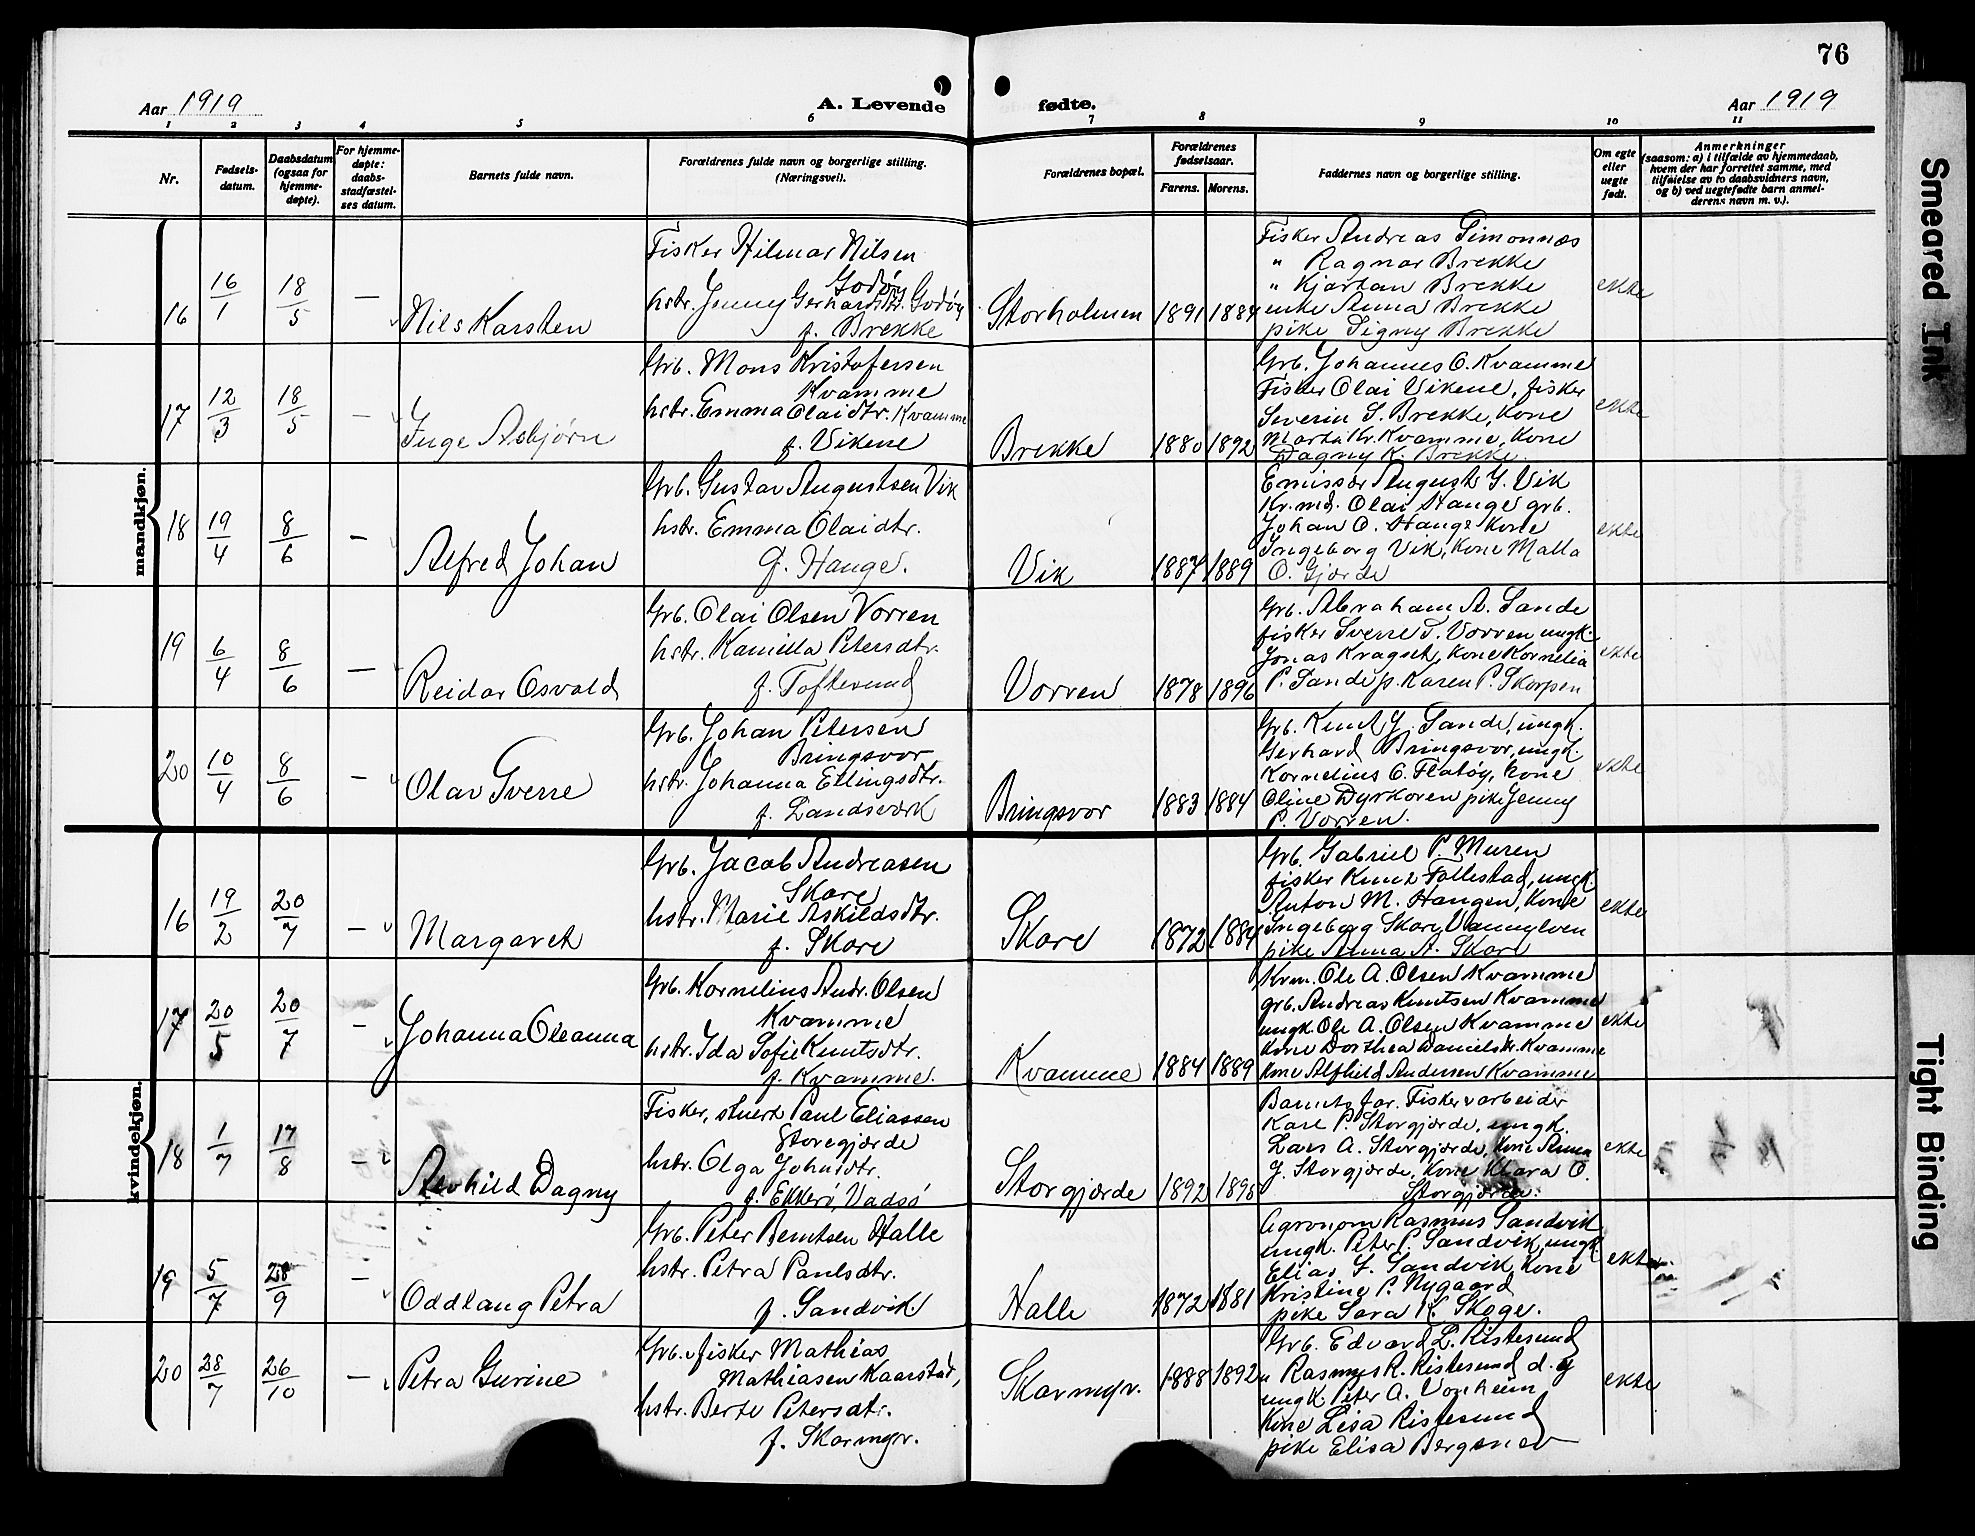 76
Aar 1919
A. Levende fødte.
Aar 1919
1 2 3 4 5 6 7 8 9 10 11
Nr.
Fødsels-
datum.
Daabsdatum
(ogsaa for
hjemme-
døpte).
For hjemme-
døpte:
daabs-
stadfæstel-
ses datum.
Barnets fulde navn.
Forældrenes fulde navn og borgerlige stilling.
(Næringsvei).
Forældrenes bopæl.
Forældrenes
fødselsaar.
Farens. Morens.
Faddernes navn og borgerlige stilling.
Om egte
eller
uegte
født.
Anmerkninger
(saasom: a) i tilfælde av hjemmedaab,
hvem der har forrettet samme, med
tilføielse av to daabsvidners navn,
og b) ved uegtefødte barn anmel-
derens navn m. v.).
mandkjøn.
16
16/1
18/5
—
Nils Karsten
Fisker Hilmar Nilsen
Godøy
hstr. Jenny Gerhardsdtr. Godøy
f. Brekke
Storholmen
1891 1889
Fisker Andreas Simonnæs
" Ragnar Brekke
" Kjartan Brekke
enke Anna Brekke
pike Signy Brekke
ekte
17
12/3
18/5
—
Inge Asbjørn
Grb. Mons Kristofersen
Kvamme
hstr. Emma Olaidtr. Kvamme
f. Vikene
Brekke
1880 1892
Grb. Johannes O. Kvamme
Fisker Olai Vikene, fisker
Severin S. Brekke, Kone
Marta Kr. Kvamme, Kone
Dagny K. Brekke.
ekte
18
19/4
8/6
—
Alfred Johan
Grb. Gustav Augustsen Vik
hstr. Emma Olaidtr.
f. Hauge.
Vik
1887 1889
Emissær August G. Vik
Kr.md. Olai Hauge grb.
Johan O. Hauge Kone
Ingeborg Vik, Kone Malla
O. Gjærde
ekte
19
6/4
8/6
—
Reidar Osvald
Grb. Olai Olsen Vorren
hstr. Kamilla Petersdtr.
f. Toftesund
Vorren
1878 1896
Grb. Abraham A. Sande
fisker Sverre T. Vorren ungk.
Jonas Kragset, Kone Kornelia
P. Sande p. Karen P. Skorpen
ekte
20
10/4
8/6
—
Olav Sverre
Grb. Johan Petersen
Bringsvor
hstr. Johanna Ellingsdtr.
f. Landsverk
Bringsvor
1883 1884
Grb. Knut J. Sande, ungk.
Gerhard Bringsvor, ungk.
Kornelius O. Flatøy, Kone
Oline Dyrkoren pike Jenny
P. Vorren.
ekte
kvindekjøn.
16
19/2
20/7
—
Margaret
Grb. Jacob Andreasen
Skare
hstr. Marie Askildsdtr.
f. Skare
Skare
1872 1884
Grb. Gabriel P. Muren
fisker Knut Follestad, ungk.
Anton M. Haugen, Kone
Ingeborg Skare Vannylven
pike Anna A. Skare
ekte
17
20/5
20/7
—
Johanna Oleanna
Grb. Kornelius Andr. Olsen
Kvamme
hstr. Ida Sofie Knutsdtr.
f. Kvamme.
Kvamme
1884 1889
Krm. Ole A. Olsen Kvamme
grb. Andreas Knutsen Kvamme
ungk Ole A. Olsen Kvamme
Kone Dorthea Danielsdtr. Kvamme
Kone Alfhild Andersen Kvamme
ekte
18
1/7
17/8
—
Alvhild Dagny
Fisker, stuert Paul Eliassen
Storegjærde
hstr. Olga Johnsdtr.
f. Ekkerø, Vadsø
Storgjærde
1892 1895
Barnets far. Fisker & arbeider
Kare P. Storgjærde, ungk.
Lars A. Storgjærde, Kone Anna
J. Storgjærde, Kone Klara O.
Storgjærde.
ekte
19
5/7
28/9
—
Oddlaug Petra
Grb. Peter Berntsen Halle
hstr. Petra Paulsdtr.
f. Sandvik
Halle
1872 1881
Agronom Rasmus Sandvik
ungk. Peter P. Sandvik, ungk
Elias S. Sandvik, Kone
Kristine P. Nygaard
pike Sara K. Skoge.
ekte
20
28/7
26/10
—
Petra Gurine
Grb. fisker Mathias
Mathiasen Kaarstad,
hstr. Berte Petersdtr.
f. Skarmyr.
Skarmyr.
1888 1892
Grb. Edvard L. Ristesund
" Rasmus R. Ristesund d.y
ungk. Peter A. Vonheim
Kone Lisa Ristesund
pike Elisa Bergsnev
ekte
Smeared Ink
Tight Binding